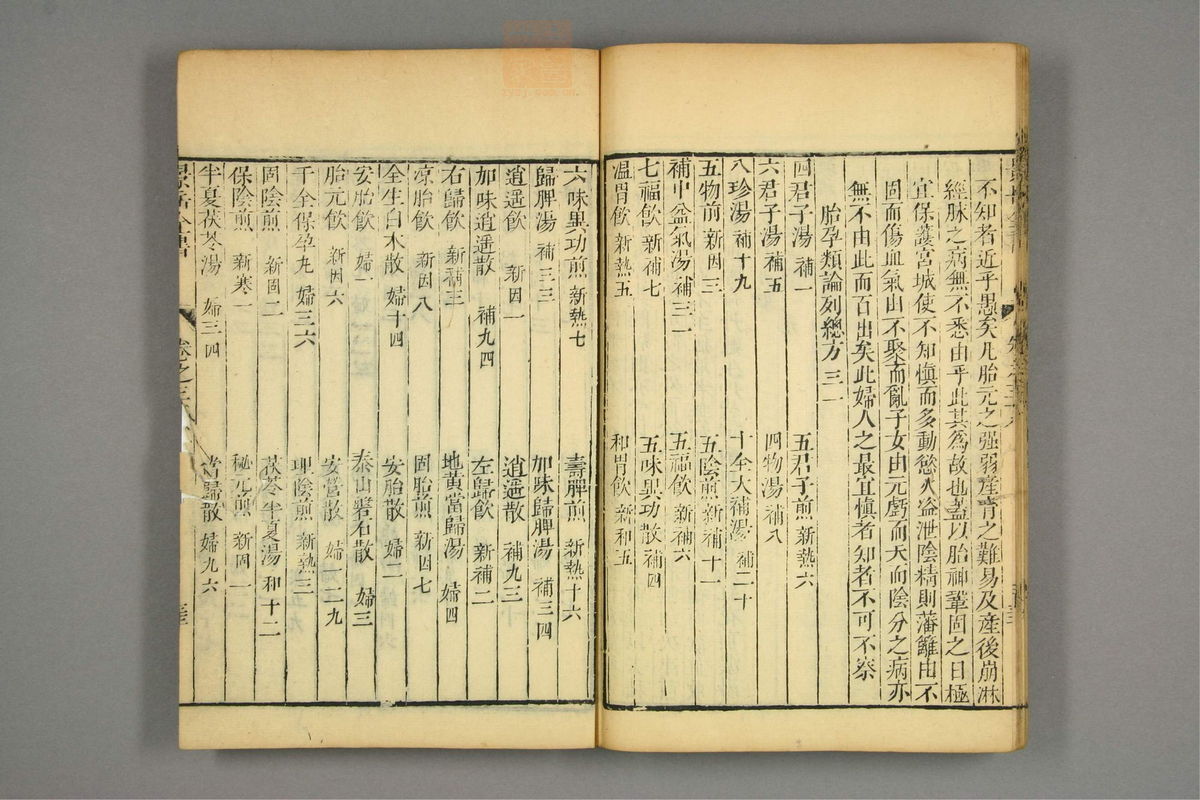 不知者近乎愚矣凡胎元之强弱產育之難易及產後崩淋
經脉之病無不悉由乎此其為故也蓋以胎神鞏固之日極
宜保護宮城使不知慎而多動慾火盜泄陰精則藩籬由不
固而傷血氣由不聚而亂子女由元虧而夭而陰分之病亦
無不由此而百出矣此婦人之最宜慎者知者不可不察
胎孕類論列總方 三一
四君子湯 補一 五君子煎 新熱六
六君子湯 補五 四物湯 補八
八珍湯 補十九 十全大補湯 補二十
五物煎 新因三 五陰煎 新補十一
補中益氣湯 補三一 五福飲 新補六
七福飲 新補七 五味異功散 補四
溫胃飲 新熱五 和胃飲 新和五
六味異功煎 新熱七 壽脾煎 新熱十六
歸脾湯 補三三 加味歸脾湯 補三四
逍遥飲 新因一 逍遥散 補九三
加味逍遥散 補九四 左歸飲 新補二
右歸飲 新補三 地黃當歸湯 婦四
凉胎飲 新因八 固胎煎 新因七
全生白术散 婦十四 安胎散 婦二
安胎飲 婦一 泰山磐石散 婦三
胎元飲 新因六 安營散 婦二九
千金保孕丸 婦三六 理陰煎 新熱三
固陰煎 新固二 茯苓半夏湯 和十二
保陰煎 新寒一 秘元煎 新固一
半夏茯苓湯 婦三四 當歸散 婦九六
景岳全書 卷之三 三三